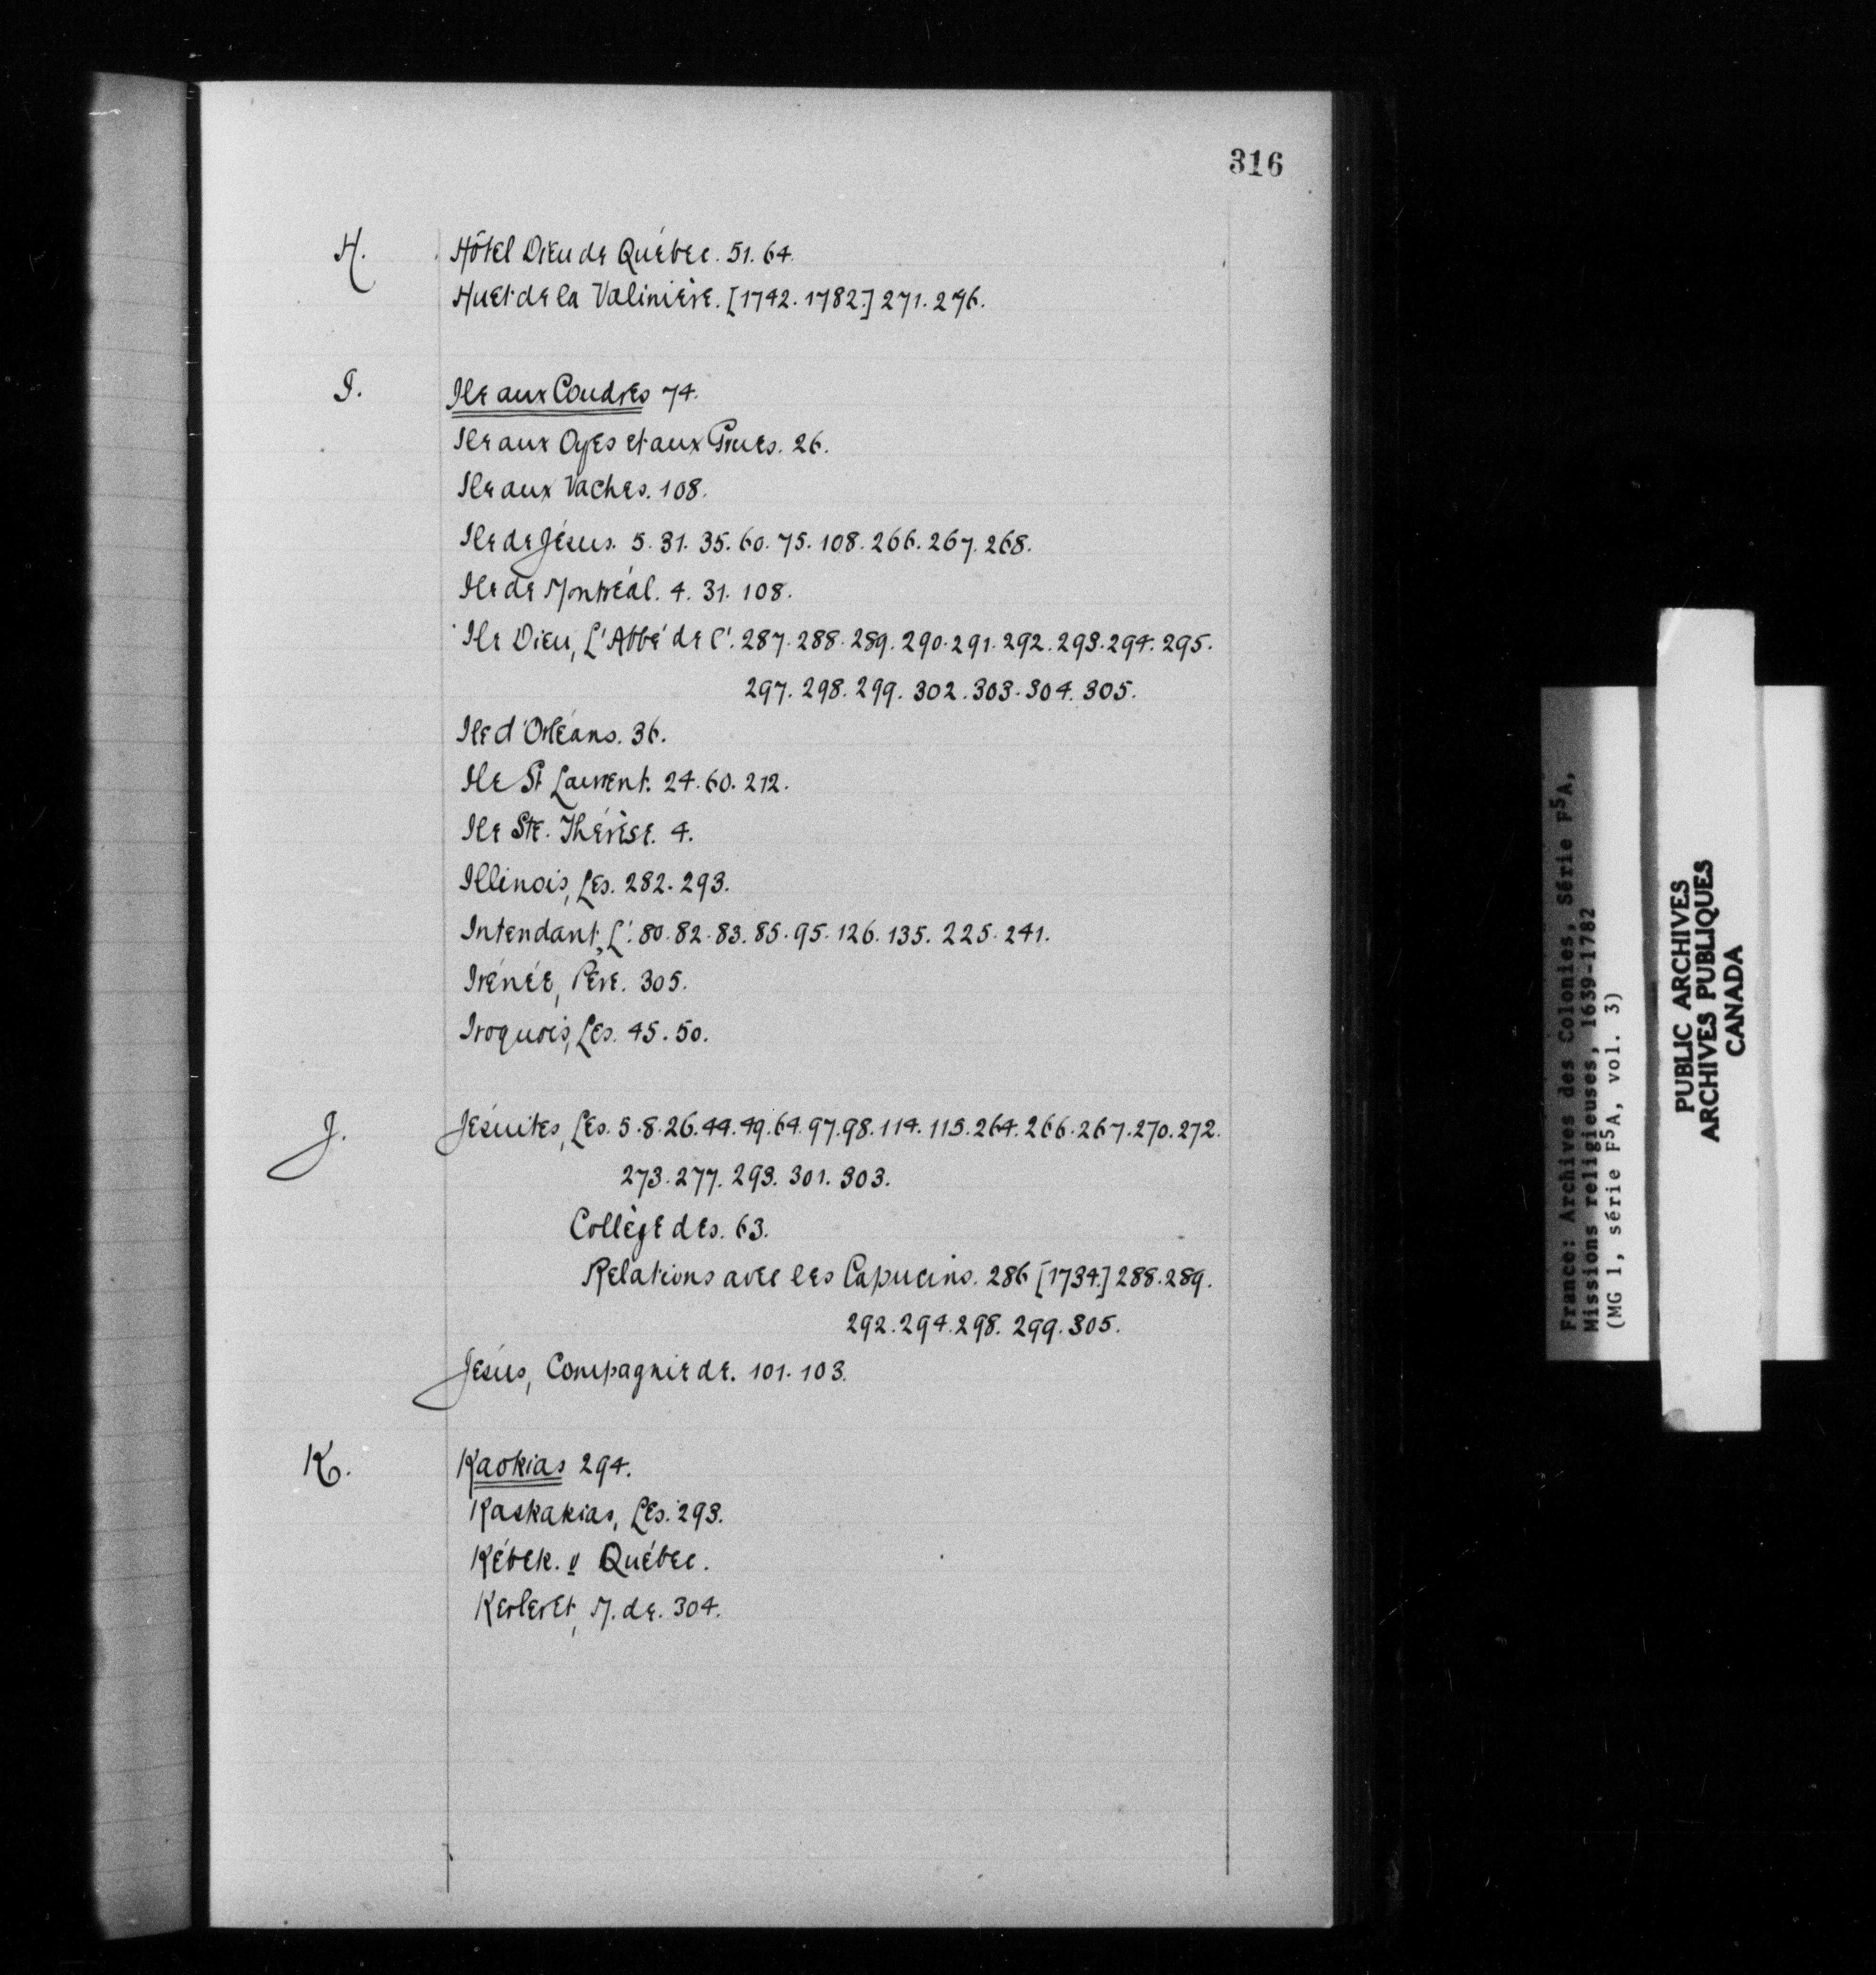 316
H. Hôtel Dieu de Québec. 51. 64.
Huet de la Valinière. [1742. 1782.] 271. 276.
I. Ile aux Coudres 74.
Ile aux Oyes et aux Grues. 26.
Ile aux Vaches. 108.
Ile de Jésus. 5. 31. 35. 60. 75. 108. 266. 267. 268.
Ile de Montréal. 4. 31. 108.
Ile Dieu, L'Abbé de l'. 287. 288. 289. 290. 291. 292. 293. 294. 295.
297. 298. 299. 302. 303. 304. 305.
Ile d'Orléans. 36.
Ile St Laurent. 24. 60. 212.
Ile Ste. Thérèse. 4.
Illinois, Les. 282. 293.
Intendant, L'. 80. 82. 83. 85. 95. 126. 135. 225. 241.
Irénée, Père. 305.
Iroquois, Les. 45. 50.
J. Jésuites, Les. 5. 8. 26. 44. 49. 64. 97. 98. 114. 115. 264. 266. 267. 270. 272.
273. 277. 293. 301. 303.
Collège des. 63.
Relations avec les Capucins. 286 [1734.] 288. 289.
292. 294. 298. 299. 305.
Jésus, Compagnie de. 101. 103.
K. Kaokias 294.
Kaskakias, Les. 293.
Kébek. v Québec.
Kerleret, M. de. 304.
France: Archives des Colonies, Série F5A,
Missions religieuses, 1639-1782
(MG 1, série F5A, vol. 3)
PUBLIC ARCHIVES
ARCHIVES PUBLIQUES
CANADA